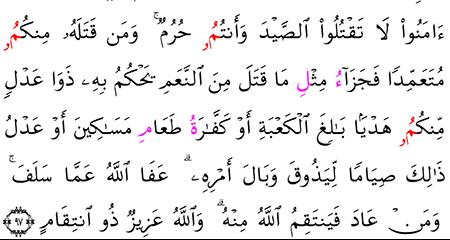 ءَامَنُوا۟ لَا تَقْتُلُوا۟ ٱلصَّيْدَ وَأَنتُمُۥ حُرُمٌۭ ۚ وَمَن قَتَلَهُۥ مِنكُمُۥ
مُتَعَمِّدًۭا فَجَزَآءُ مِثْلِ مَا قَتَلَ مِنَ ٱلنَّعَمِ يَحْكُمُ بِهِۦ ذَوَا عَدْلٍۢ
مِّنكُمُۥ هَدْيًۢا بَٰلِغَ ٱلْكَعْبَةِ أَوْ كَفَّٰرَةُ طَعَامِ مَسَٰكِينَ أَوْ عَدْلُ
ذَٰلِكَ صِيَامًۭا لِّيَذُوقَ وَبَالَ أَمْرِهِۦ ۗ عَفَا ٱللَّهُ عَمَّا سَلَفَ ۚ
وَمَنْ عَادَ فَيَنتَقِمُ ٱللَّهُ مِنْهُ ۗ وَٱللَّهُ عَزِيزٌۭ ذُو ٱنتِقَامٍ ٩٧